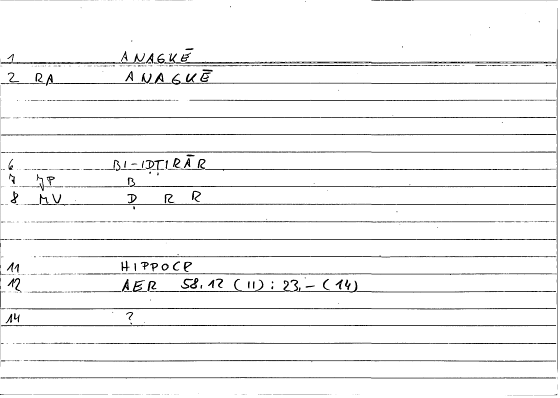 1 ANAGKĒ
2 RA ANAGKĒ
6 BI-IḌṬIRĀR
7 JP B
8 MV Ḍ R R
11 HIPPOCR
12 AER 58.12 (11) : 23,- (14)
14 ?